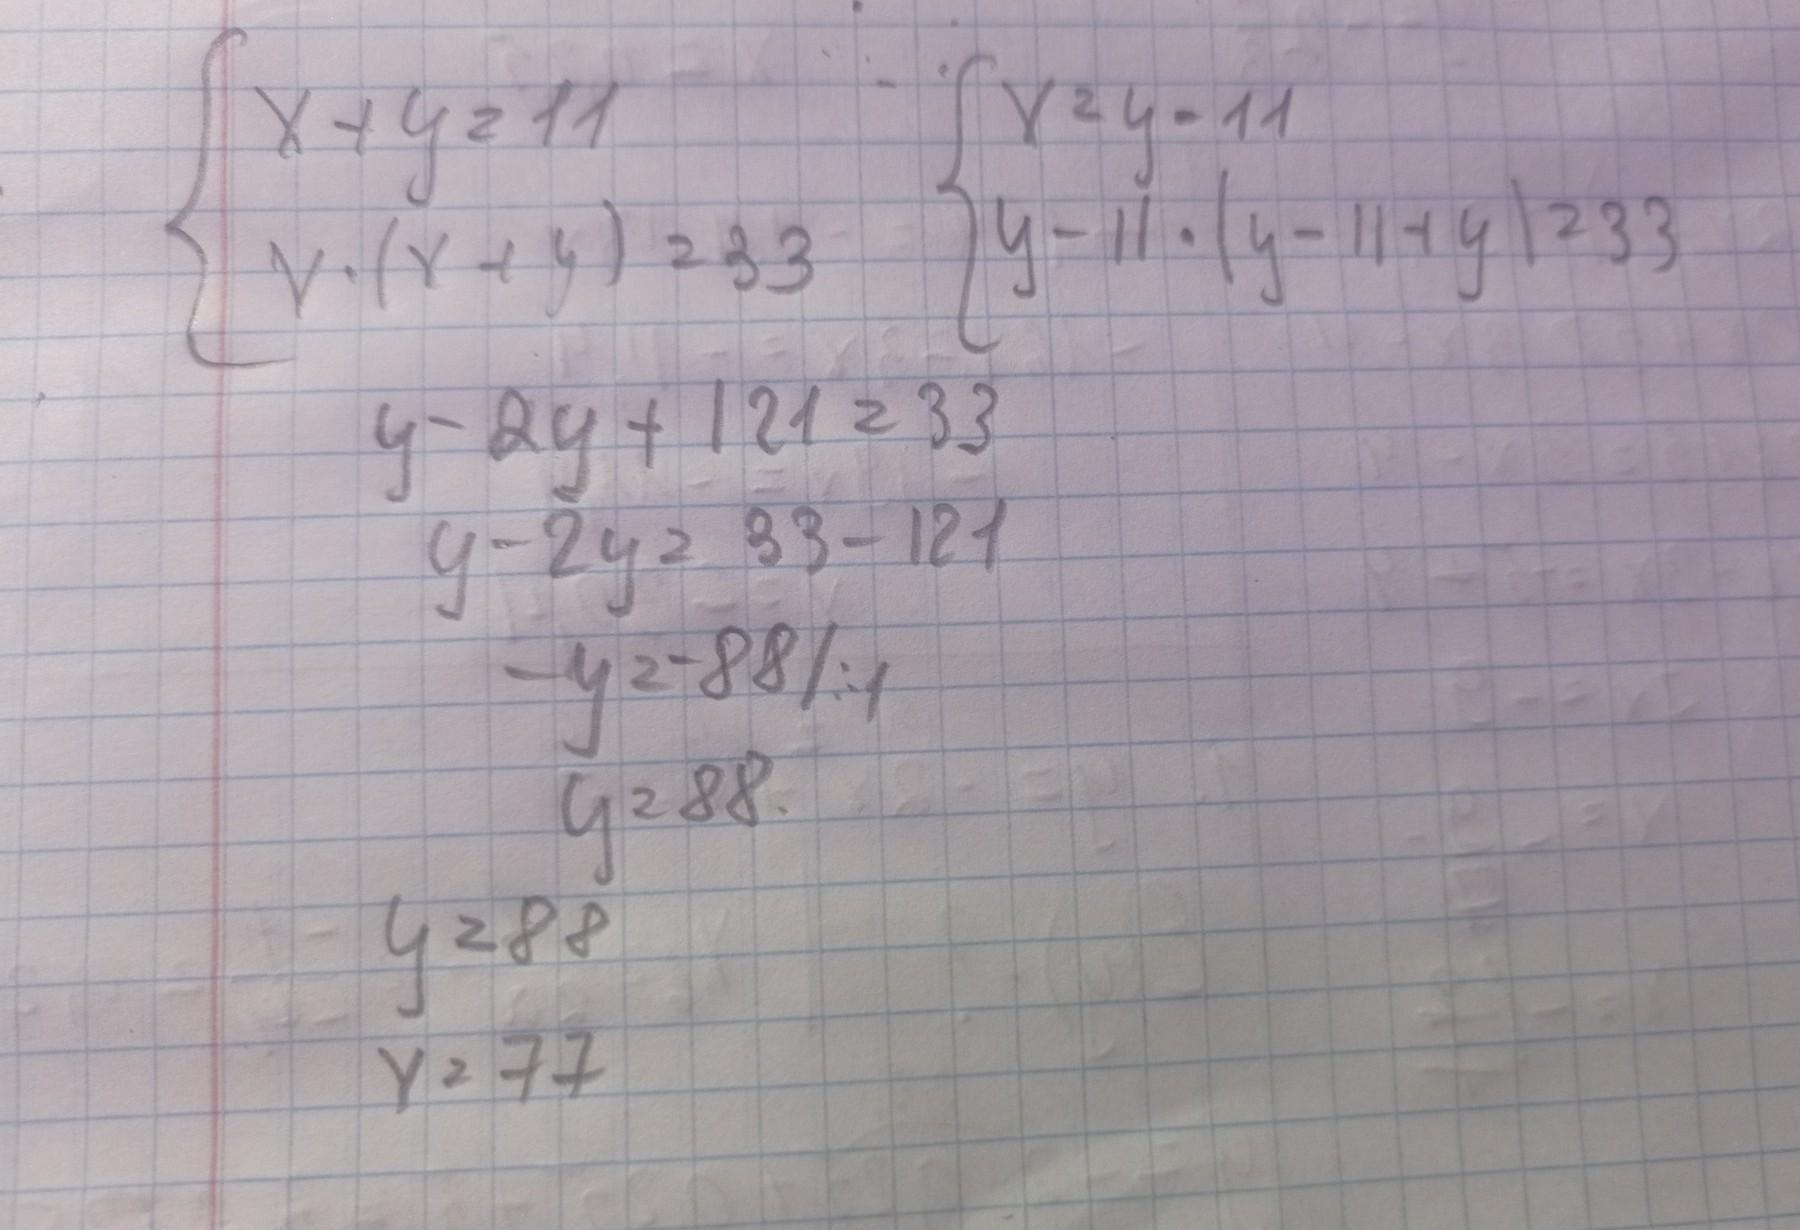 x + y = 11
x · (x + y) = 33
x = y - 11
y - 11 · (y - 11 + y) = 33
y - 2y + 121 = 33
y - 2y = 33 - 121
-y = -88 /:-1
y = 88.
y = 88
x = 77